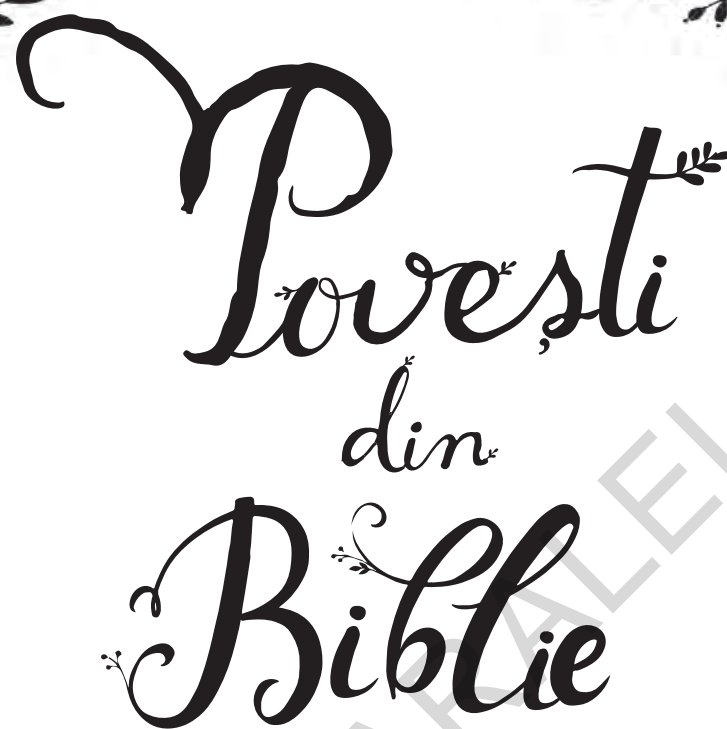 Povești
din
Biblie